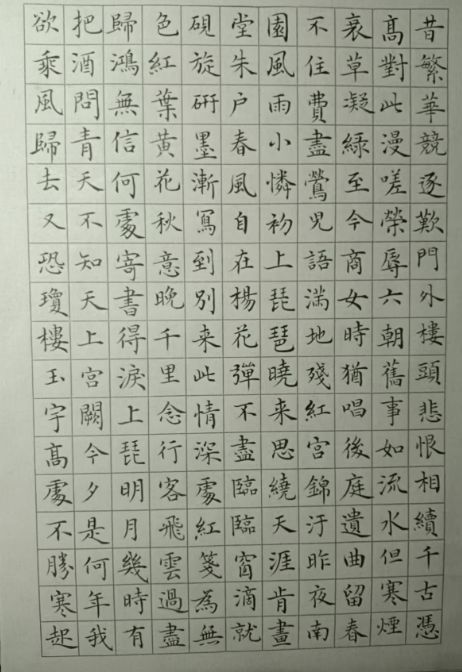 昔繁華競逐歎門外樓頭悲恨相續千古憑
高對此漫嗟榮辱六朝舊事如流水但寒煙
衰草凝綠至今商女時猶唱後庭遺曲留春
不住費盡鶯兒語滿地殘紅宮錦汙昨夜南
園風雨小憐初上琵琶曉来思繞天涯肯畫
堂朱户春風自在楊花彈不盡臨臨窗滴就
硯旋硏墨漸寫到別来此情深處紅箋為無
色紅葉黃花秋意晚千里念行客飛雲過盡
歸鴻無信何處寄書得淚上琵明月幾時有
把酒問青天不知天上宮闕今夕是何年我
欲乘風歸去又恐瓊樓玉宇高處不勝寒起